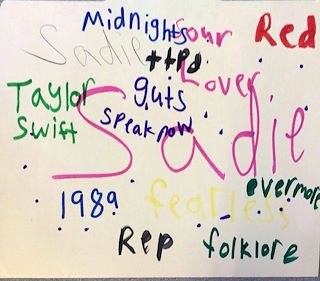 Midnights
sour
Red
Sadie
ttpd
lover
Taylor
Swift
guts
speak now
Sadie
evermore
1989
fearless
Rep
folklore